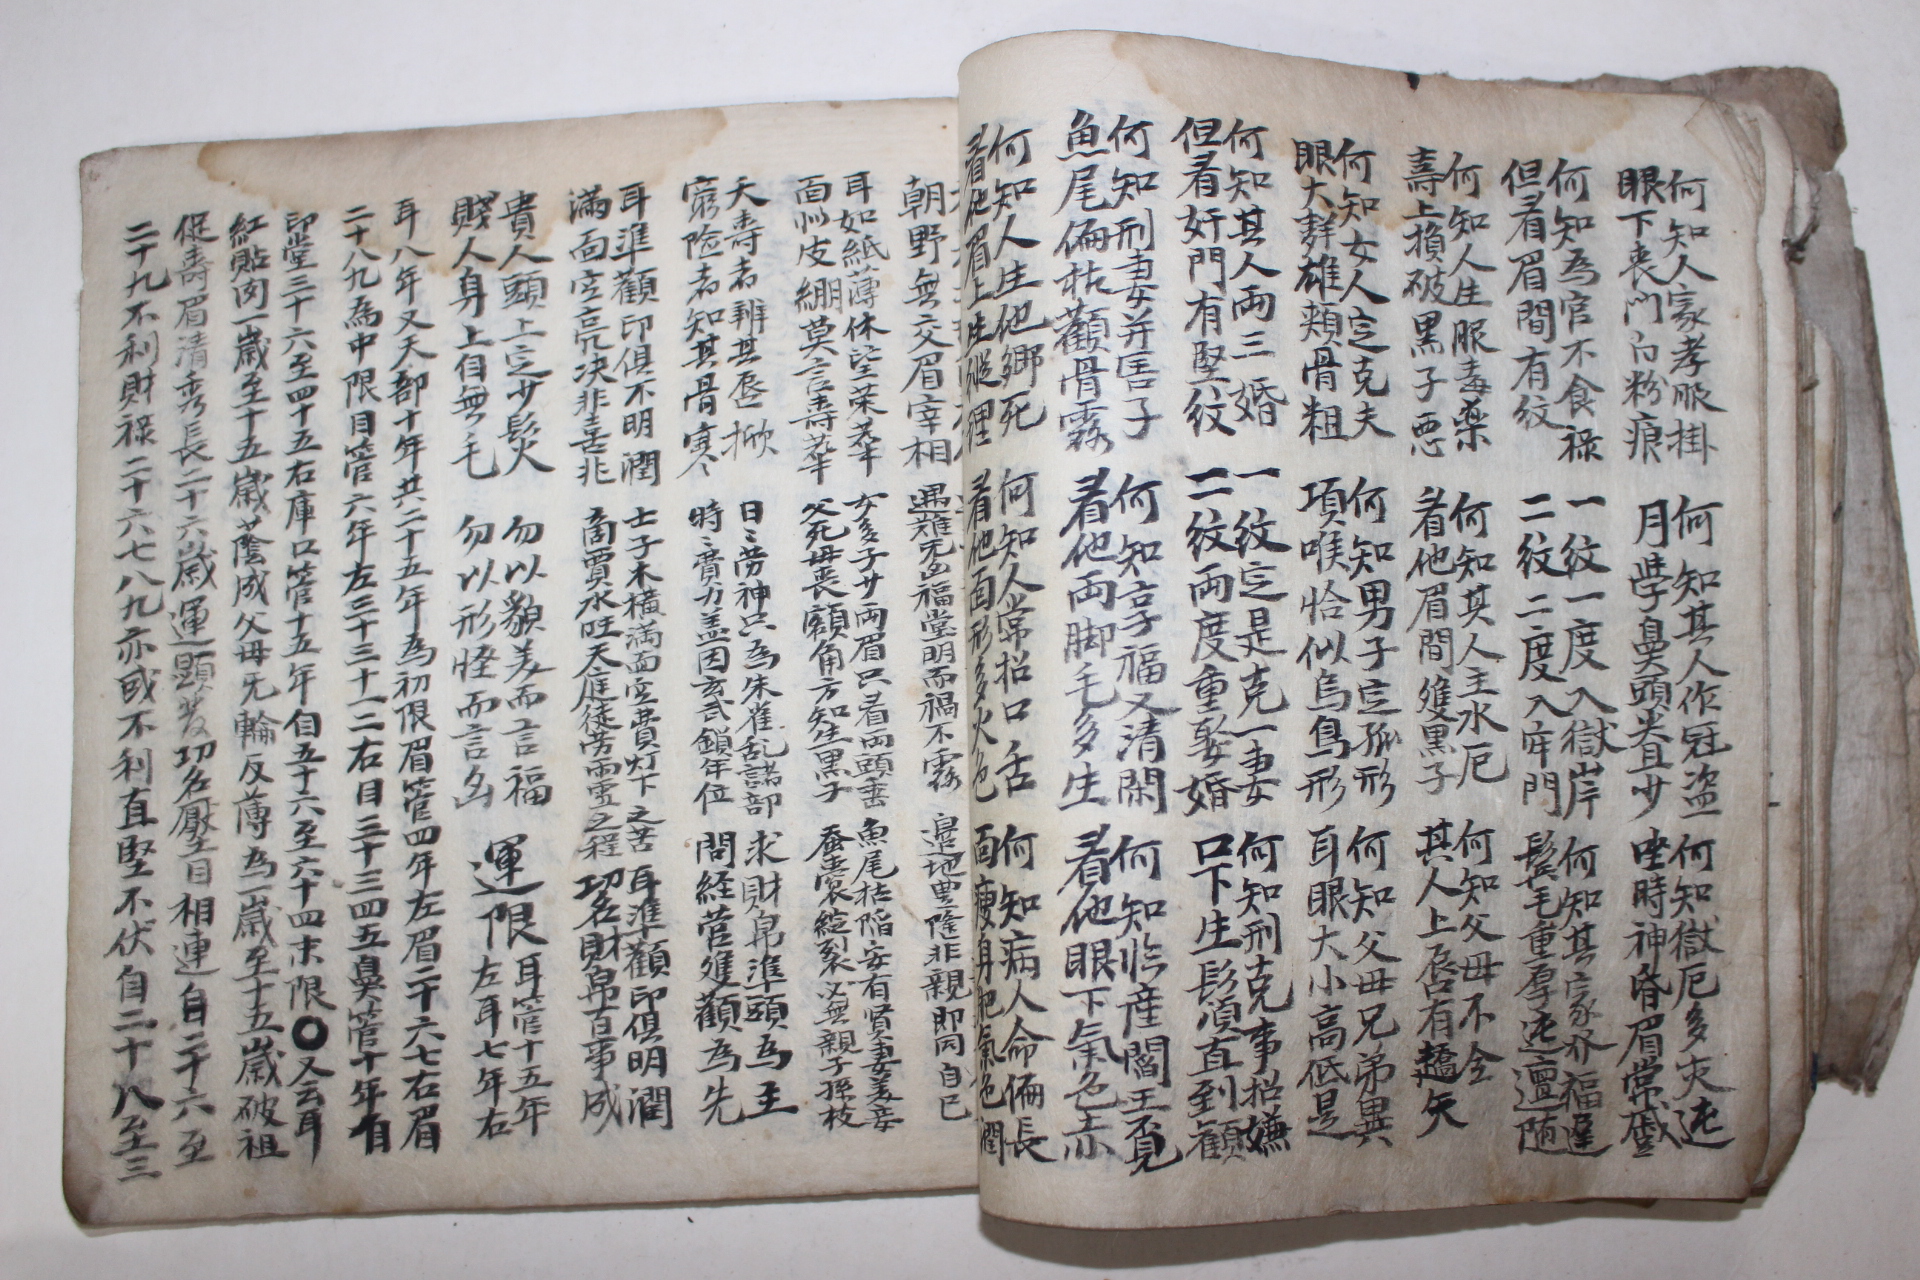 何知人家孝服掛 何知其人作冠盗 何知獄厄多灾迍
眼下喪門白粉痕 月孛鼻頭尖且少 唑時神昏眉常戚
何知為官不食禄 一紋一度入獄岸 何知其家水福遲
但看眉間有紋 二紋二度入牢門 鬂毛重厚迍邅随
何知人生服毒藥 何知其人主水厄 何知父母不仝
壽上損破黑子悪 看他眉間雙黑子 其人上唇有趫矢
何知女人定克夫 何知男子定孤形 何知父母兄弟異
眼大群雄頬骨粗 項喉恰似烏鳥形 耳眼大小高低是
何知其人両三婚 一紋定是克一妻 何知刑克事招嫌
但看奸門有竪紋 二紋両度重娶婚 口下生髭須直到顴
何知刑妻并害子 何知享福又清閑 何知临産閻王覓
魚尾偏枯顴骨露 看他両脚毛多生 看他眼下氣色赤
何知人生他鄉死 何知人常招口舌 何知病人命偏長
看他眉上生縱理 看他面形多火色 面瘦身肥氣色潤
朝野無交眉宰相 遇难无凶福堂明而禍不露 邉地豊隆非親即同自巳
耳如紙薄休望荣華 女多子少両眉只看両頭垂 魚尾枯陷安有賢妻美妾
面似皮繃莫言壽 父死母喪額角方知生黒子 蚕囊綻裂必無親子孫枝
夭壽者辨其唇掀 日〻劳神只為朱雀乱諾部 求財帛準頭為主
窮险者知其骨寒 時〻費力盖因玄武鎖年位 問経营雙顴為先
耳準顴印俱不明潤 士子木橫満面空費灯下之苦 耳準顴印俱明潤
満面空亮决非吉兆 商賈水旺天庭徒劳雨雪之程 功名財帛百事成
貴人頭上定少髪 勿以貌美而言福 運限 耳管十五年
賤人身上自無毛 勿以形怪而言凶 左耳七年右
耳八年又天部十年共二十五年為初限眉管四年左眉二十六七右眉
二十八九為中限目管六年左三十三十一二右目三十三四五鼻管十年有
印堂三十六至四十五右庫口管十五年自五十六至六十四末限○又云耳
紅貼肉一歲至十五歲蔭成父母无輪反薄為一歲至十五歲破祖
促壽眉清秀長二十六歲運顯发功名壓目相連自二十六至
二十九不利財禄二十六七八九亦或不利直堅不伏自二十八至三